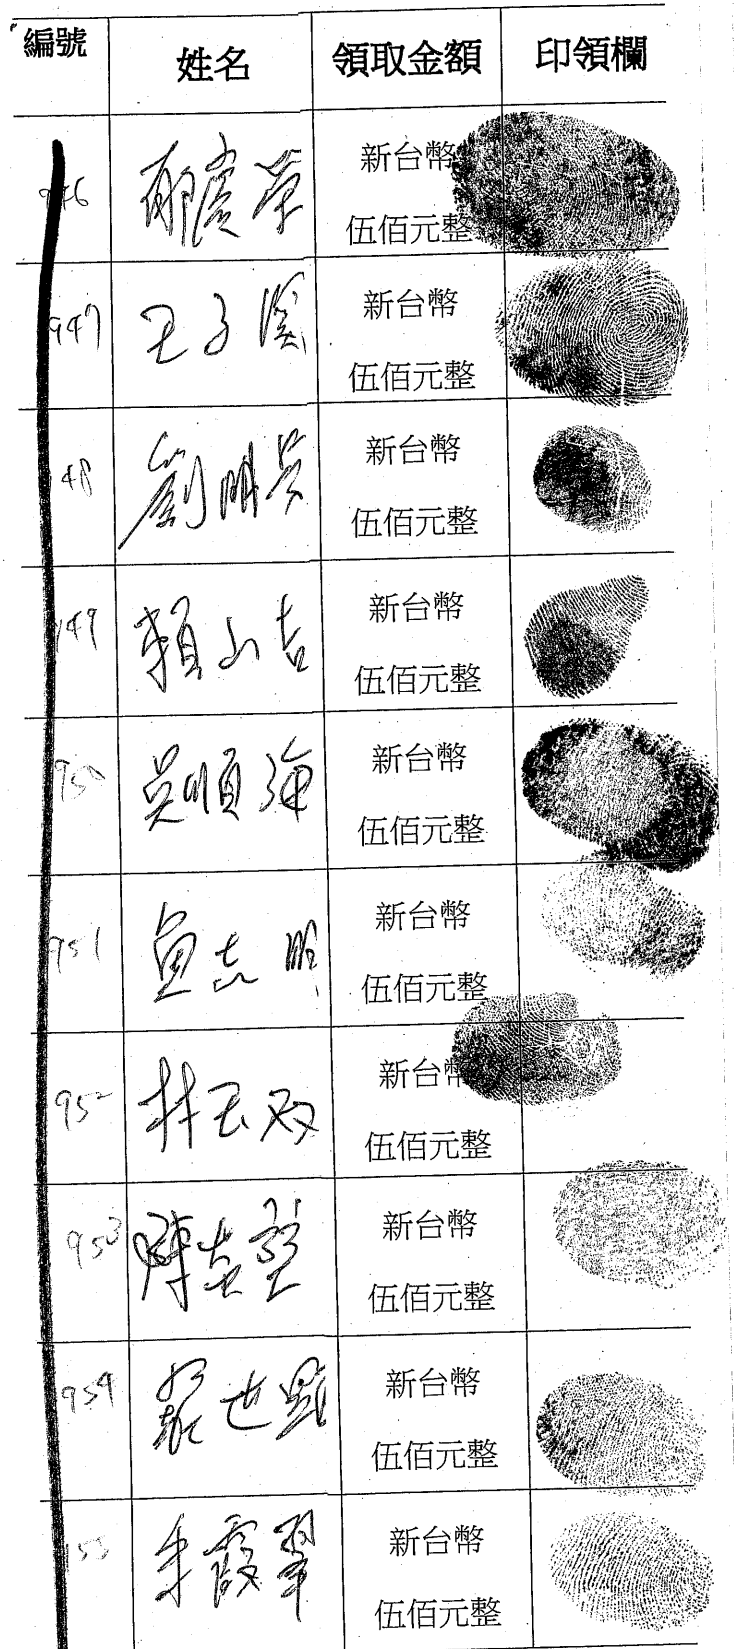 編號 姓名 領取金額 印領欄
946 榮 新台幣
伍佰元整
947 王子溪 新台幣
伍佰元整
48 劉明 新台幣
伍佰元整
149 賴山吉 新台幣
伍佰元整
950 吳順海 新台幣
伍佰元整
951 明 新台幣
伍佰元整
952 林玉双 新台幣
伍佰元整
953 陳 新台幣
伍佰元整
954 世 新台幣
伍佰元整
155 朱霞翠 新台幣
伍佰元整